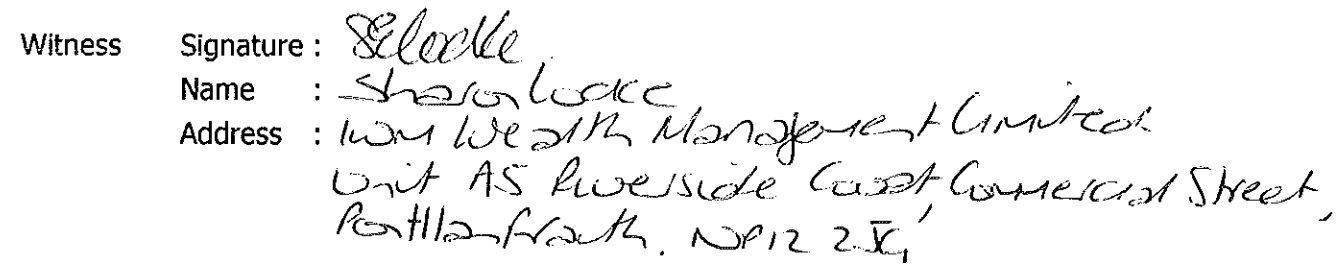 Witness Signature : SElocke
Name : Sharon Locke
Address : IWM Wealth Management Limited
Unit A5 Riverside Court, Commercial Street,
Pontllanfraith. NP12 2